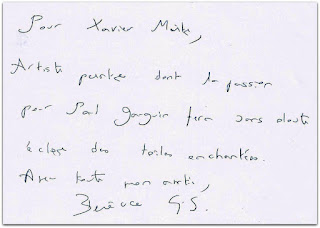 Pour Xavier
Artiste peintre dont la passion
pour Paul Gauguin fera sans doute
éclore des toiles enchantées.
Avec toute mon amitié,
G.S.